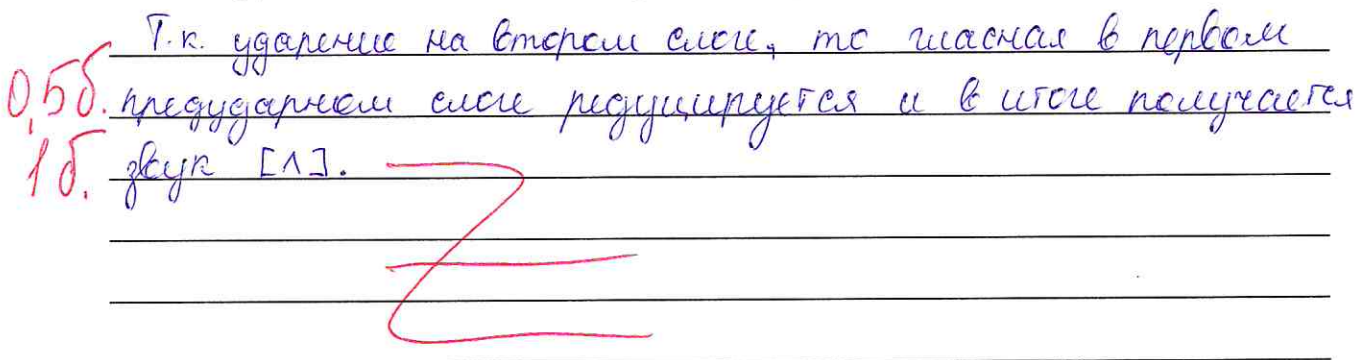 Т.к. ударение на втором слоге, то гласная в первом
0,5б. предударном слоге редуцируется и в итоге получается
1б. звук [Λ].